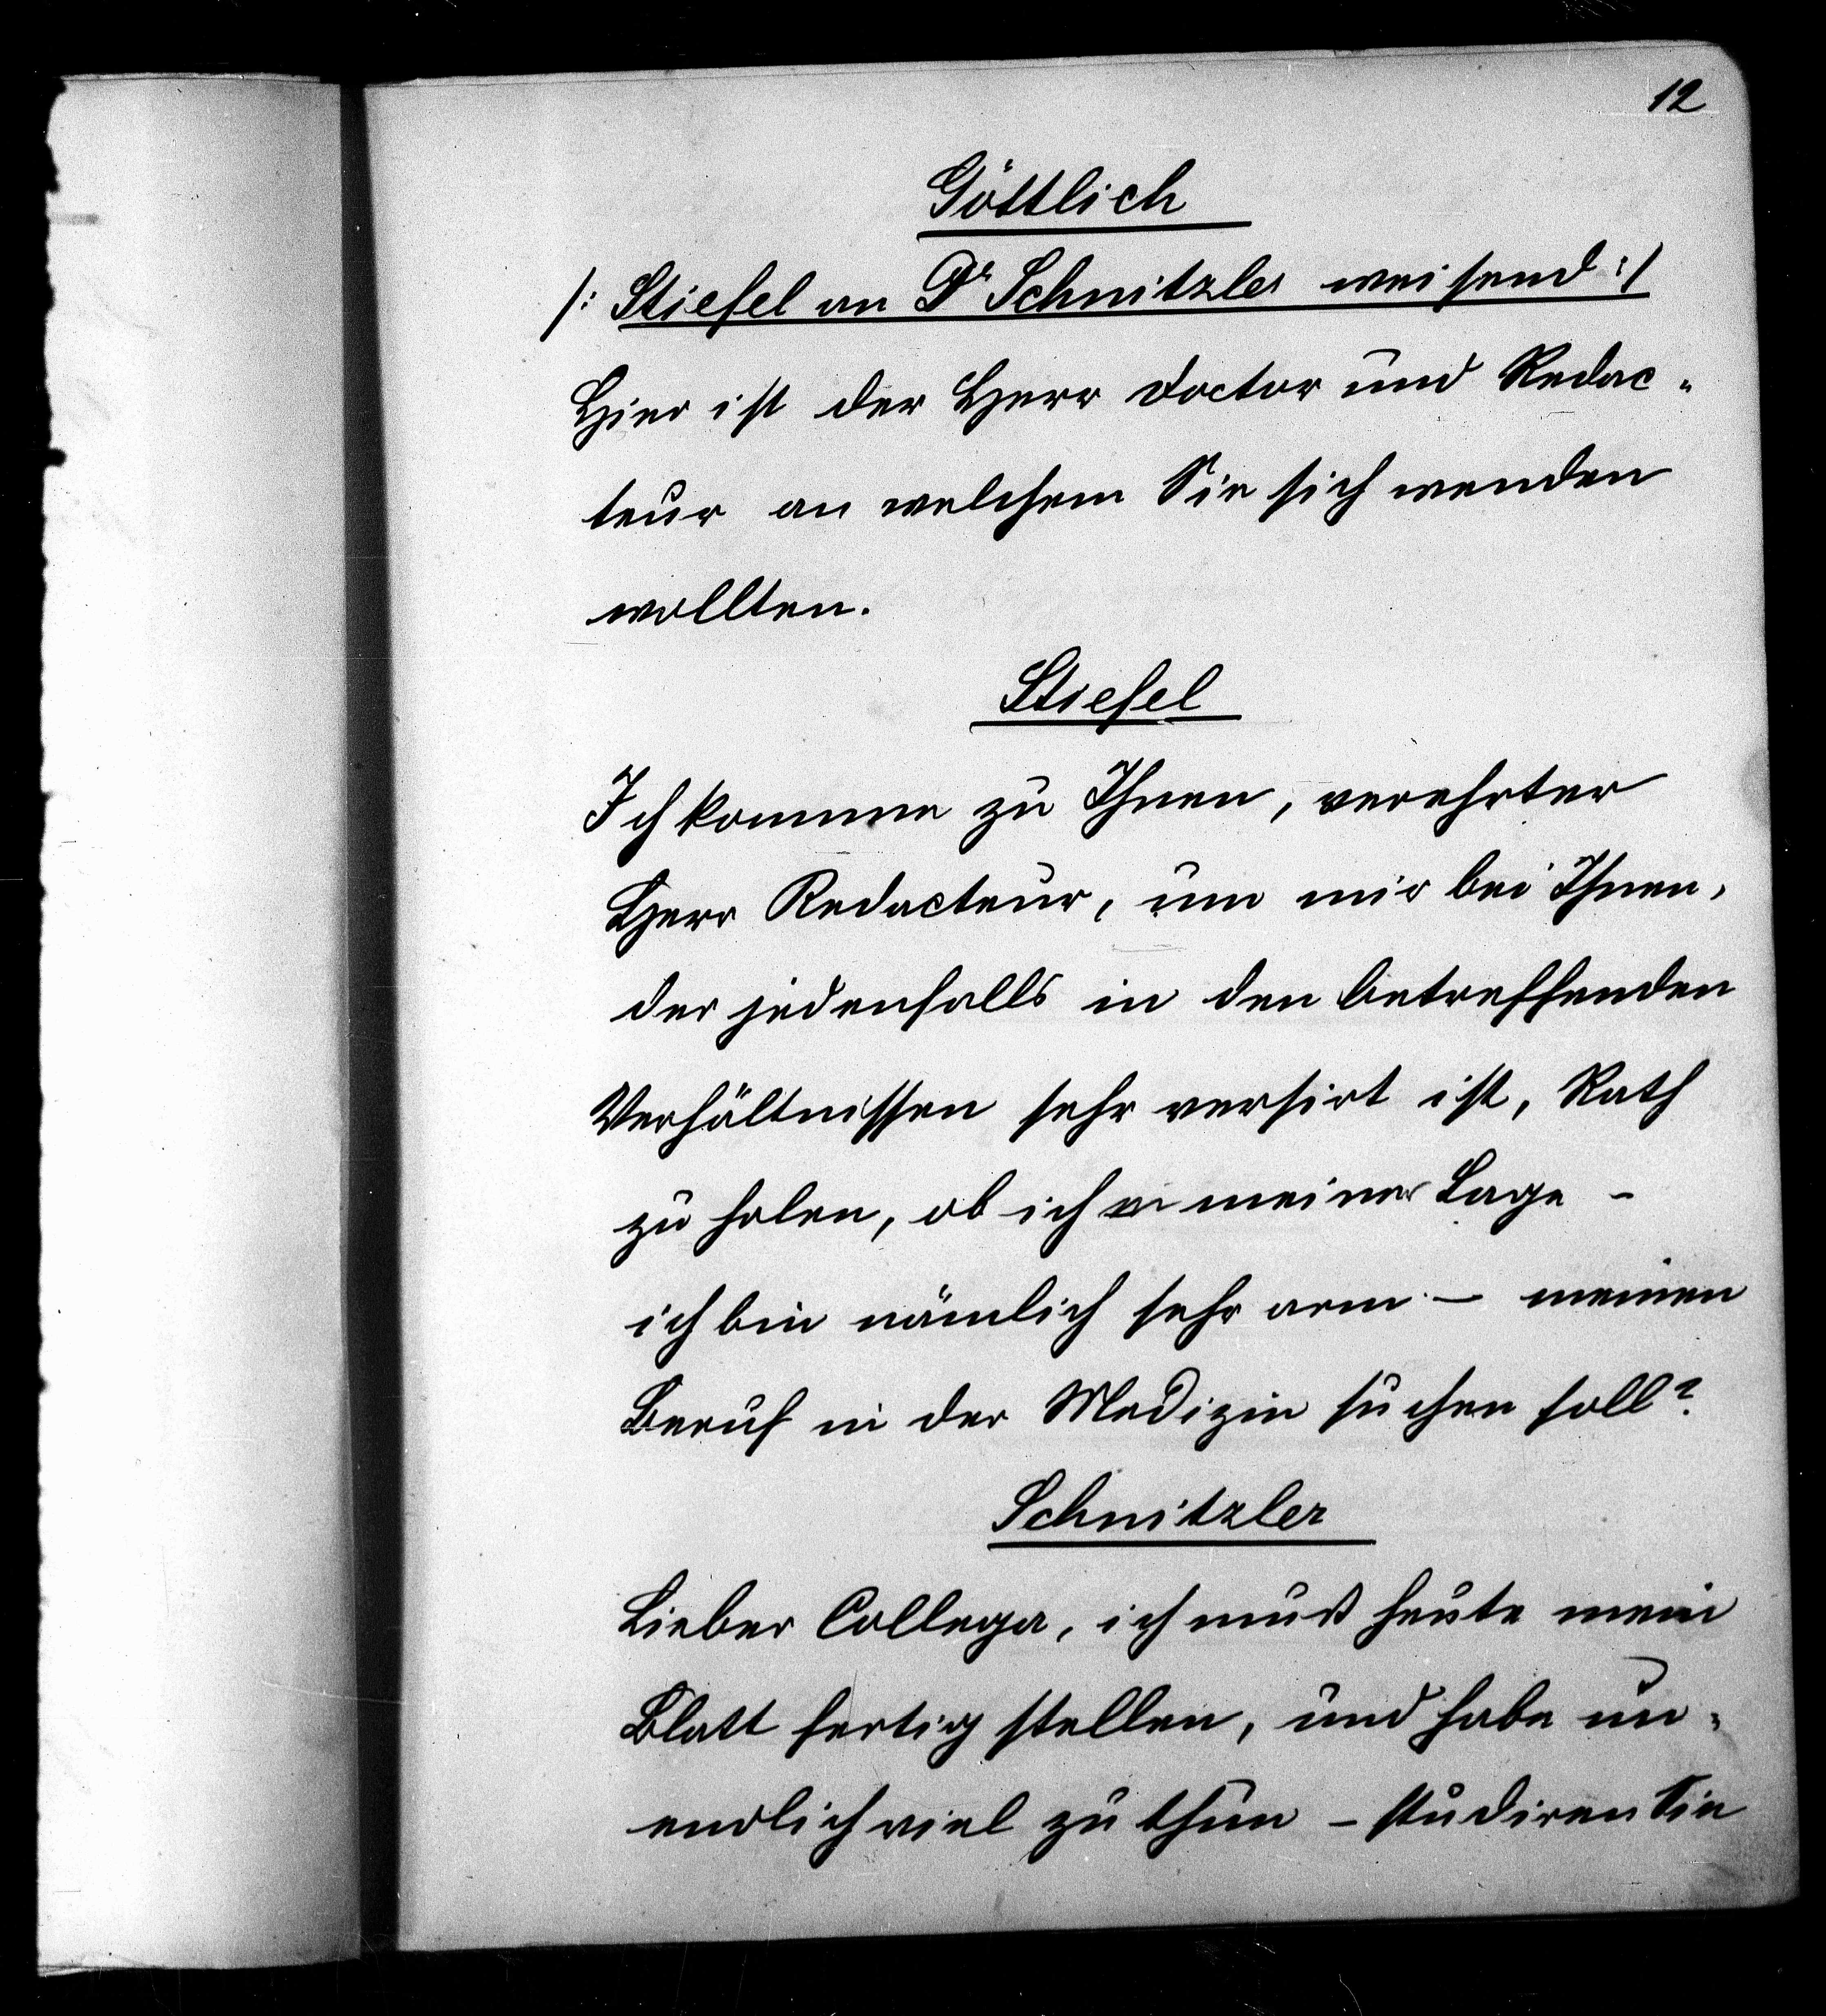 12
Göttlich
/: Stiefel an Dr Schnitzler weisend :/
Hier ist der Herr Doctor und Redac-
teur an welchem Sie sich wenden
wollten.
Stiefel
Ich komme zu Ihnen, verehrter
Herr Redacteur, um mir bei Ihnen,
der jedenfalls in den betreffenden
Verhältnissen sehr versirt ist, Rath
zu holen, ob ich in meiner Lage –
ich bin nämlich sehr arm – meinen
Beruf in der Medizin suchen soll?
Schnitzler
Lieber Collega, ich muß heute mein
Blatt fertig stellen, und habe un-
endlich viel zu thun – studiren Sie